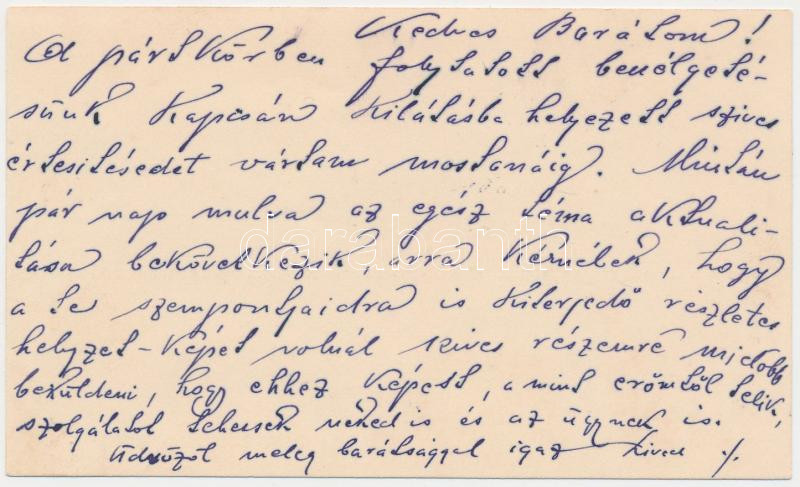 Kedves Barátom!
A pártkörben folytatott beszélgeté-
sünk kapcsán kilátásba helyezett szives
értesitésedet vártam mostanáig. Miután
pár nap mulva az egész téma aktuali-
tása bekövetkezik, arra kérnélek, hogy
a te szempontjaidra is kiterjedő részletes
helyzet-képet volnál szives részemre mielőbb
beküldeni, hogy ehhez képest, a mint erőmtől telik,
szolgálatot tehessek néked is és az ügynek is.
Üdvözöl meleg barátsággal igaz hived ./.
darabanth